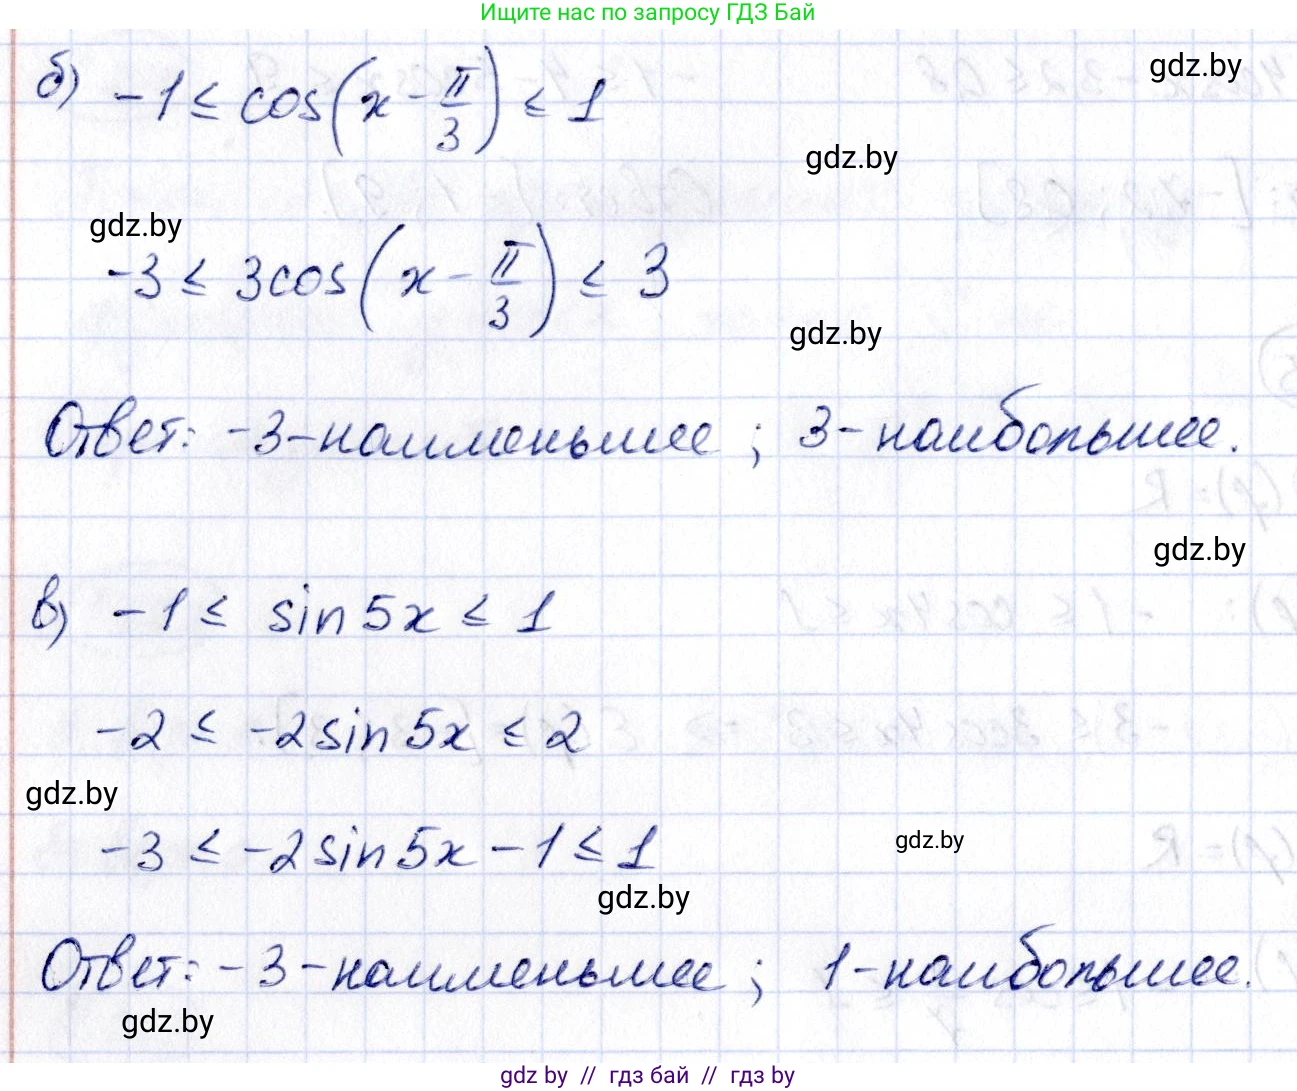 Ищите нас по запросу ГДЗ Бай
gdz.by
б) -1 ≤ cos(x - π/3) ≤ 1
gdz.by
gdz.by
-3 ≤ 3cos(x - π/3) ≤ 3
gdz.by
Ответ: -3 - наименьшее ; 3 - наибольшее.
gdz.by
в) -1 ≤ sin5x ≤ 1
-2 ≤ -2sin5x ≤ 2
gdz.by
-3 ≤ -2sin5x - 1 ≤ 1
gdz.by
gdz.by
Ответ: -3 - наименьшее ; 1 - наибольшее.
gdz.by
gdz by // гдз бай // гдз by